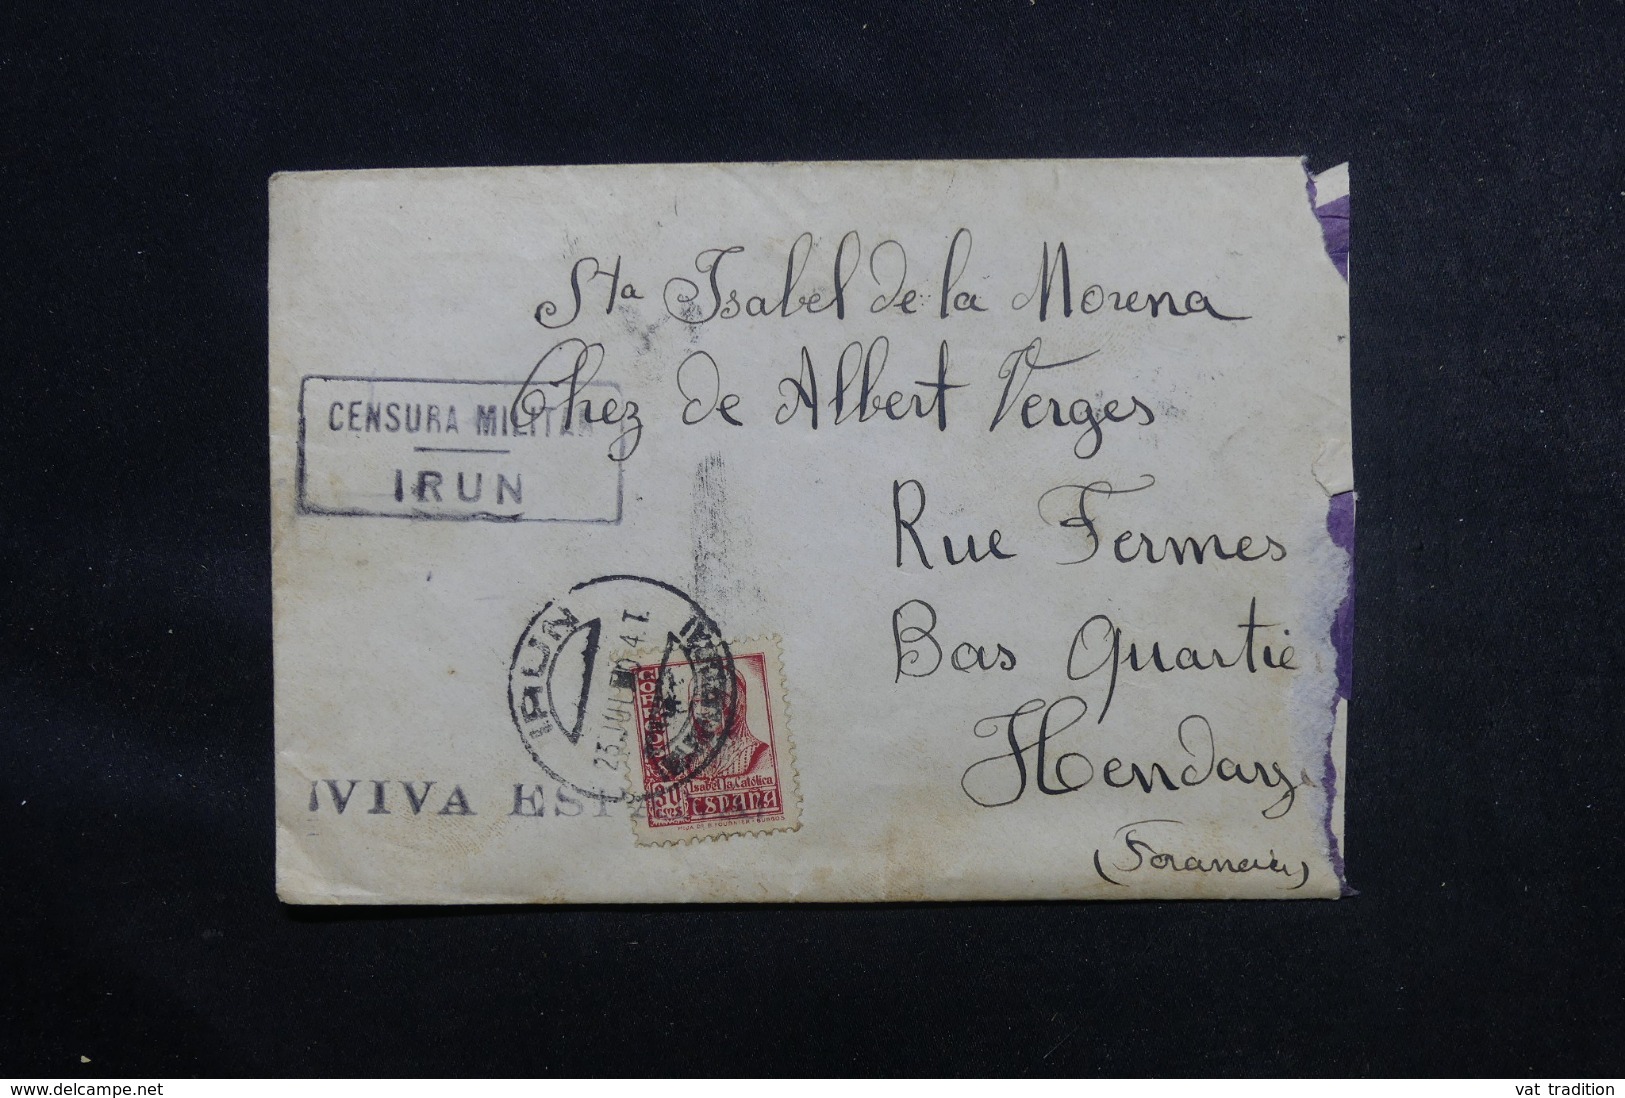 Sta Isabel de la Morena
Chez de Albert Verges
Rue Fermes
Bas Quartie
Hendaye
(Forancia)
CENSURA MILITAR
IRUN
IRUN
¡VIVA ESP
CORREOS
Isabel la Católica
30 CTMS
ESPAÑA
HIJA DE B. FOURNIER-BURGOS
www.delcampe.net
vat tradition